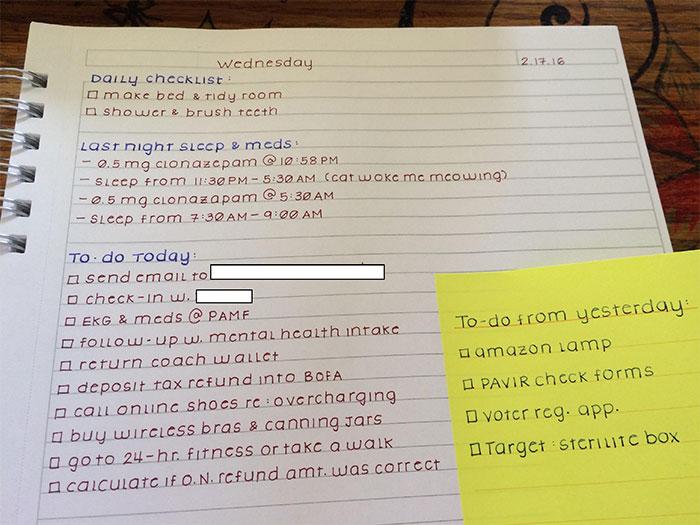 Wednesday 2.17.16
Daily checklist:
make bed & tidy room
shower & brush teeth
Last night sleep & meds:
- 0.5 mg clonazepam @ 10:58 PM
- sleep from 11:30 PM - 5:30 AM (cat woke me meowing)
- 0.5 mg clonazapam @ 5:30 AM
- sleep from 7:30 AM - 9:00 AM
To-do Today:
send email to
check-in w.
EKG & meds @ PAMF
follow-up w. mental health intake
return coach wallet
deposit tax refund into BOFA
call online shoes re: overcharging
buy wireless bras & canning jars
go to 24-hr. fitness or take a walk
calculate if O.N. refund amt. was correct
To-do from yesterday:
amazon lamp
PAVIR check forms
voter reg. app.
Target: sterilite box